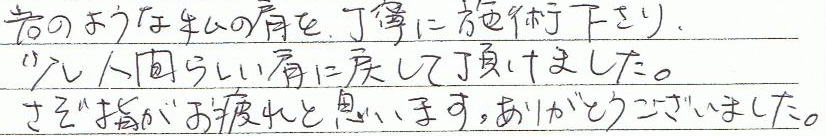 岩のような私の肩を、丁寧に施術下さり、
少し人間らしい肩に戻して頂けました。
さぞ指がお疲れと思います。ありがとうございました。